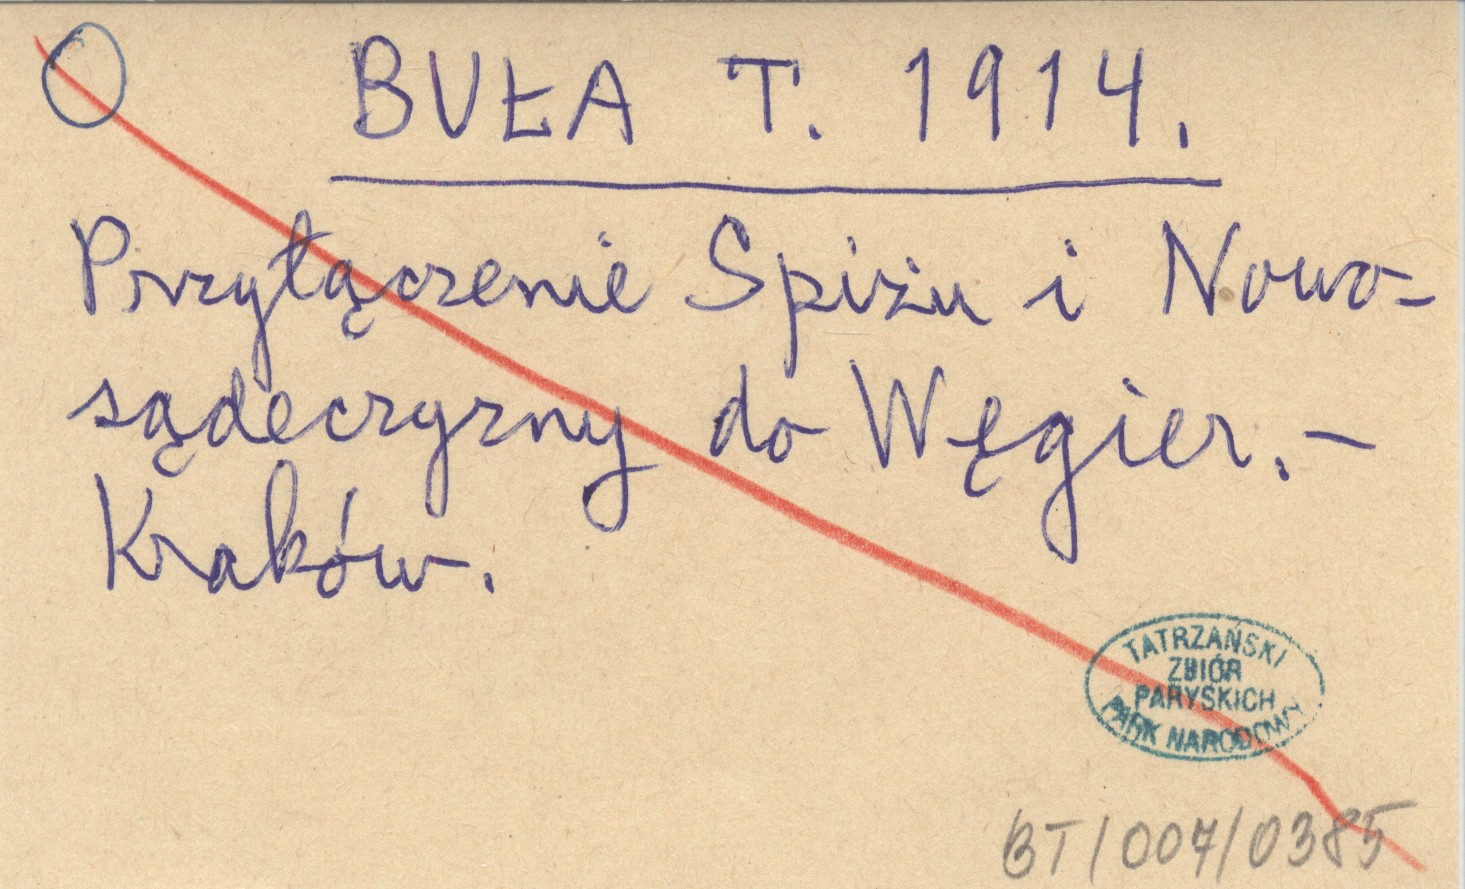 BUŁA T. 1914.
Przyłączenie Spiżu i Nowo=
sądeczyzny do Węgier. –
Kraków.
TATRZAŃSKI
ZBIÓR
PARYSKICH
PARK NARODOWY
BT/007/0385